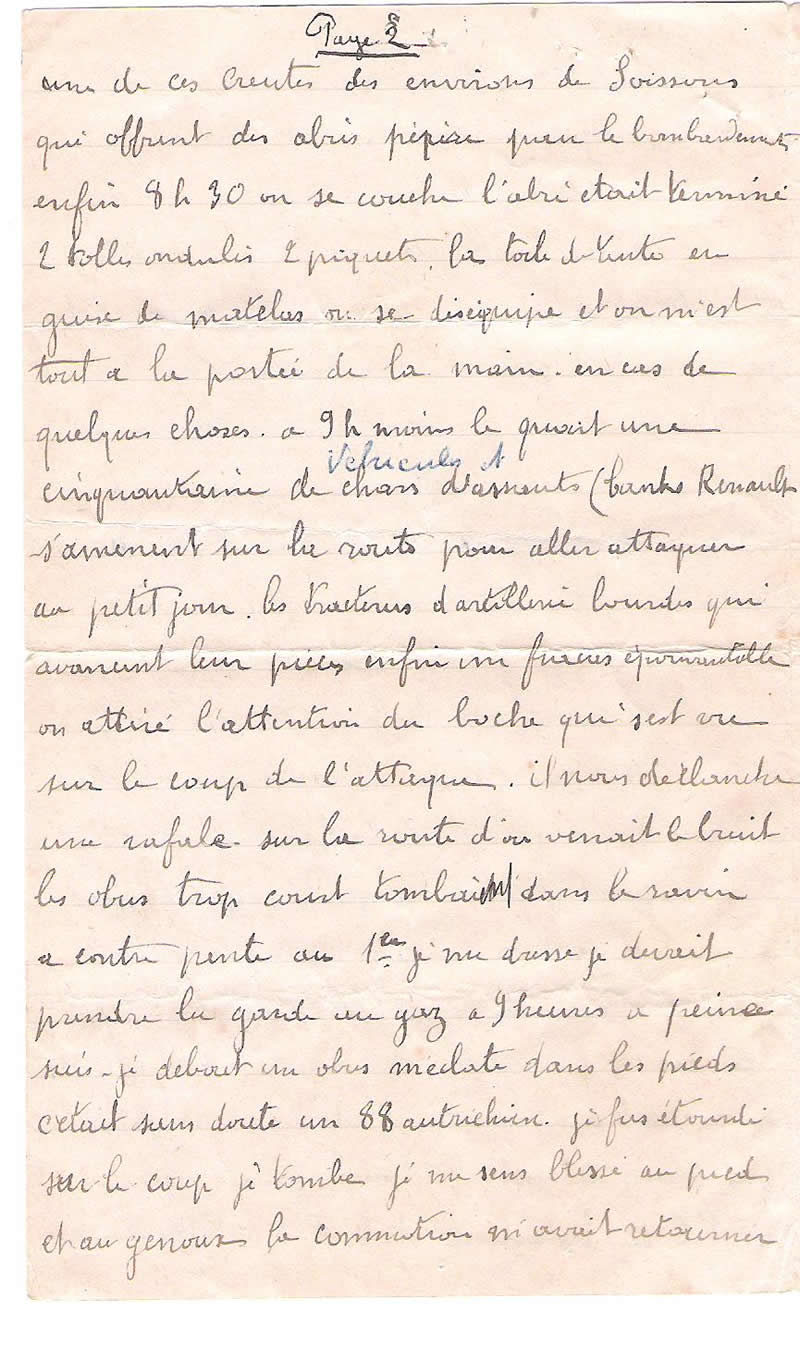 Page 2
une de ces Creutes des environs de Soissons
qui offrent des abris pépère pour le bombardement
enfin 8 h 30 on se couche l'abri etait terminé
2 tolles ondulés 2 piquets, la toile de tente en
guise de matelas on se deséquipe et on m'est
tout a la porteé de la main. en cas de
quelques choses. a 9 h moins le quart une
Vehicules et
cinquantaine de chars d'assauts (tanks Renault
s'amenent sur la route pour aller attaquer
au petit jour. les tracteurs d'artillerie lourdes qui
avancent leur pièces enfin un fracas épouvantable
on attiré l'attention du boche qui s'est vu
sur le coup de l'attaque. il nous déclanche
une rafale sur la route d'ou venait le bruit
les obus trop court tombaient dans le ravin
a contre pente au 1er je me dresse je devait
prendre la garde au gaz a 9 heures a peine
suis-je debout un obus m'eclate dans les pieds
c'etait sans doute un 88 autrichien. je fus étourdi
sur le coup je tombe je me sens blessé au pied
et au genoux la commotion m'avait retourner